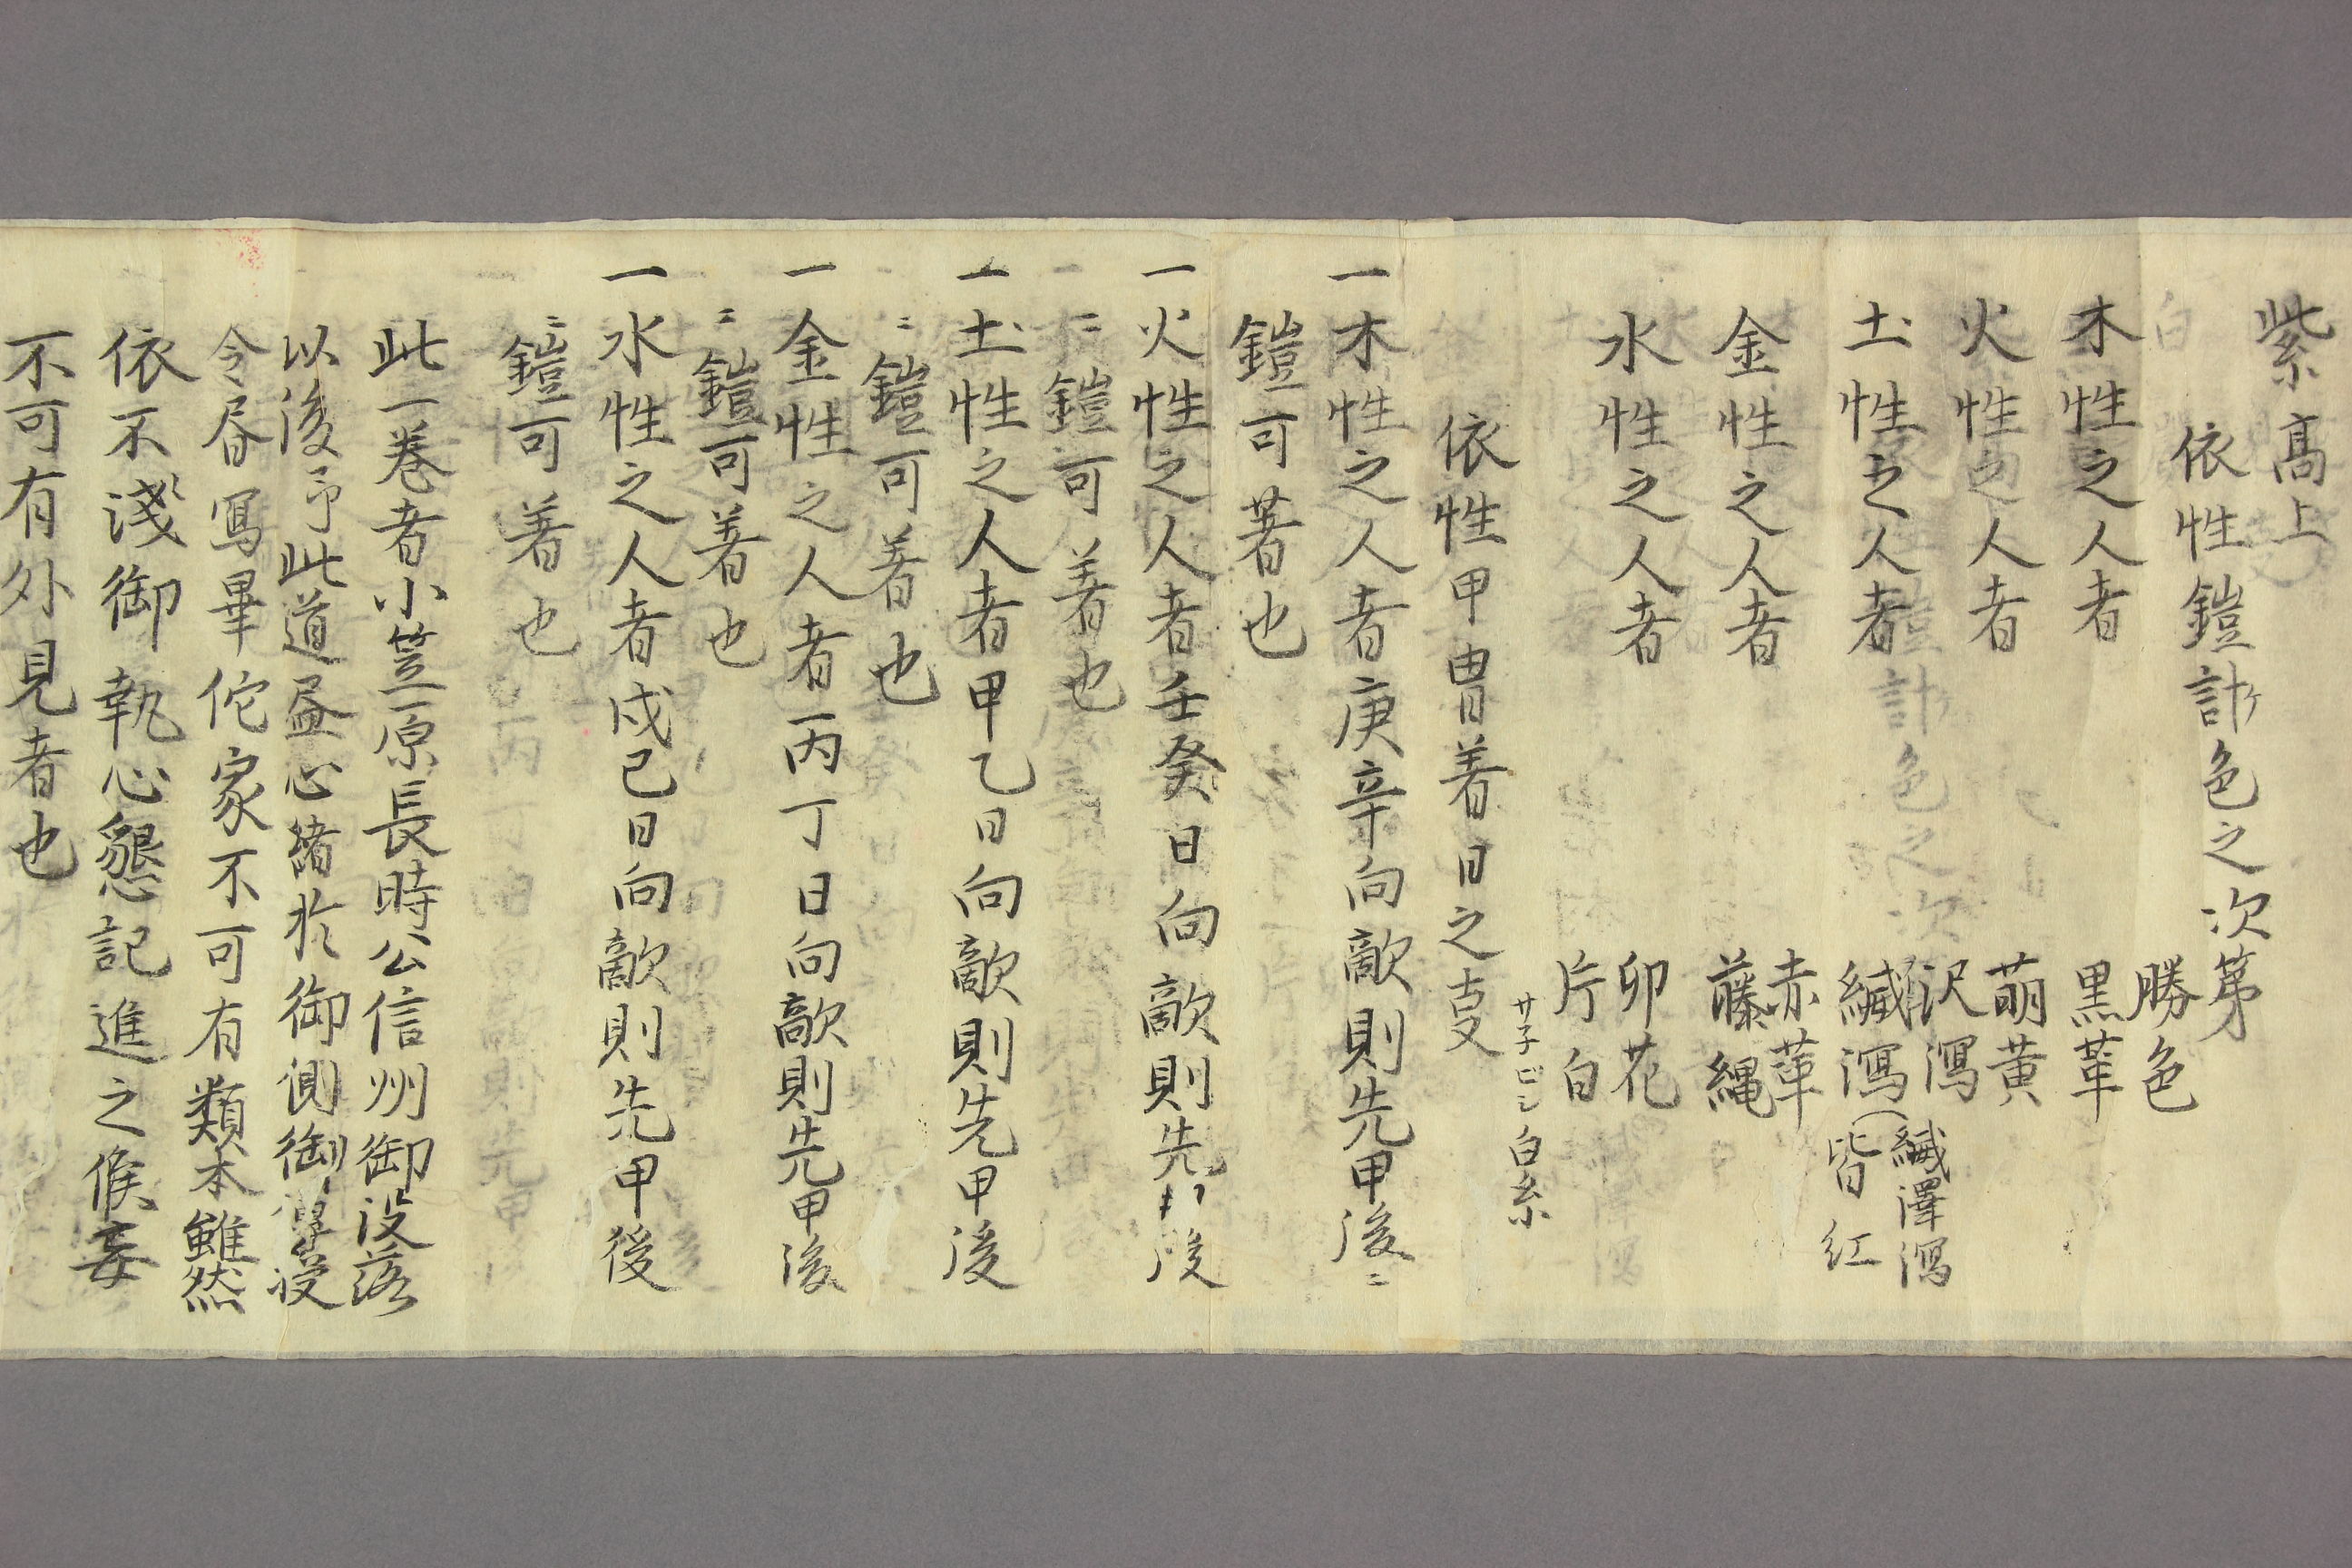 紫高上
依性鎧計ケ色之次第
木性之人者 勝色 黒革
火性之人者 萌黄
土性之人者 沢瀉 縅澤瀉 縅瀉 皆紅
金性之人者 赤革 藤縄
水性之人者 卯花 片白
サ子ビシ白糸
依性甲冑着日之㕝
一木性之人者庚辛向敵則先甲後ニ
鎧可着也
一火性之人者壬癸日向敵則先甲後
ニ鎧可着也
一土性之人者甲乙日向敵則先甲後
ニ鎧可着也
一金性之人者丙丁日向敵則先甲後
ニ鎧可着也
一水性之人者戊己日向敵則先甲後
ニ鎧可着也
此一巻者小笠原長時公信州御没落
以後予此道盡心緒於御側御授
令昏寫畢佗家不可有類本雖然
依不淺御執心懇記進之候妄
不可有外見者也